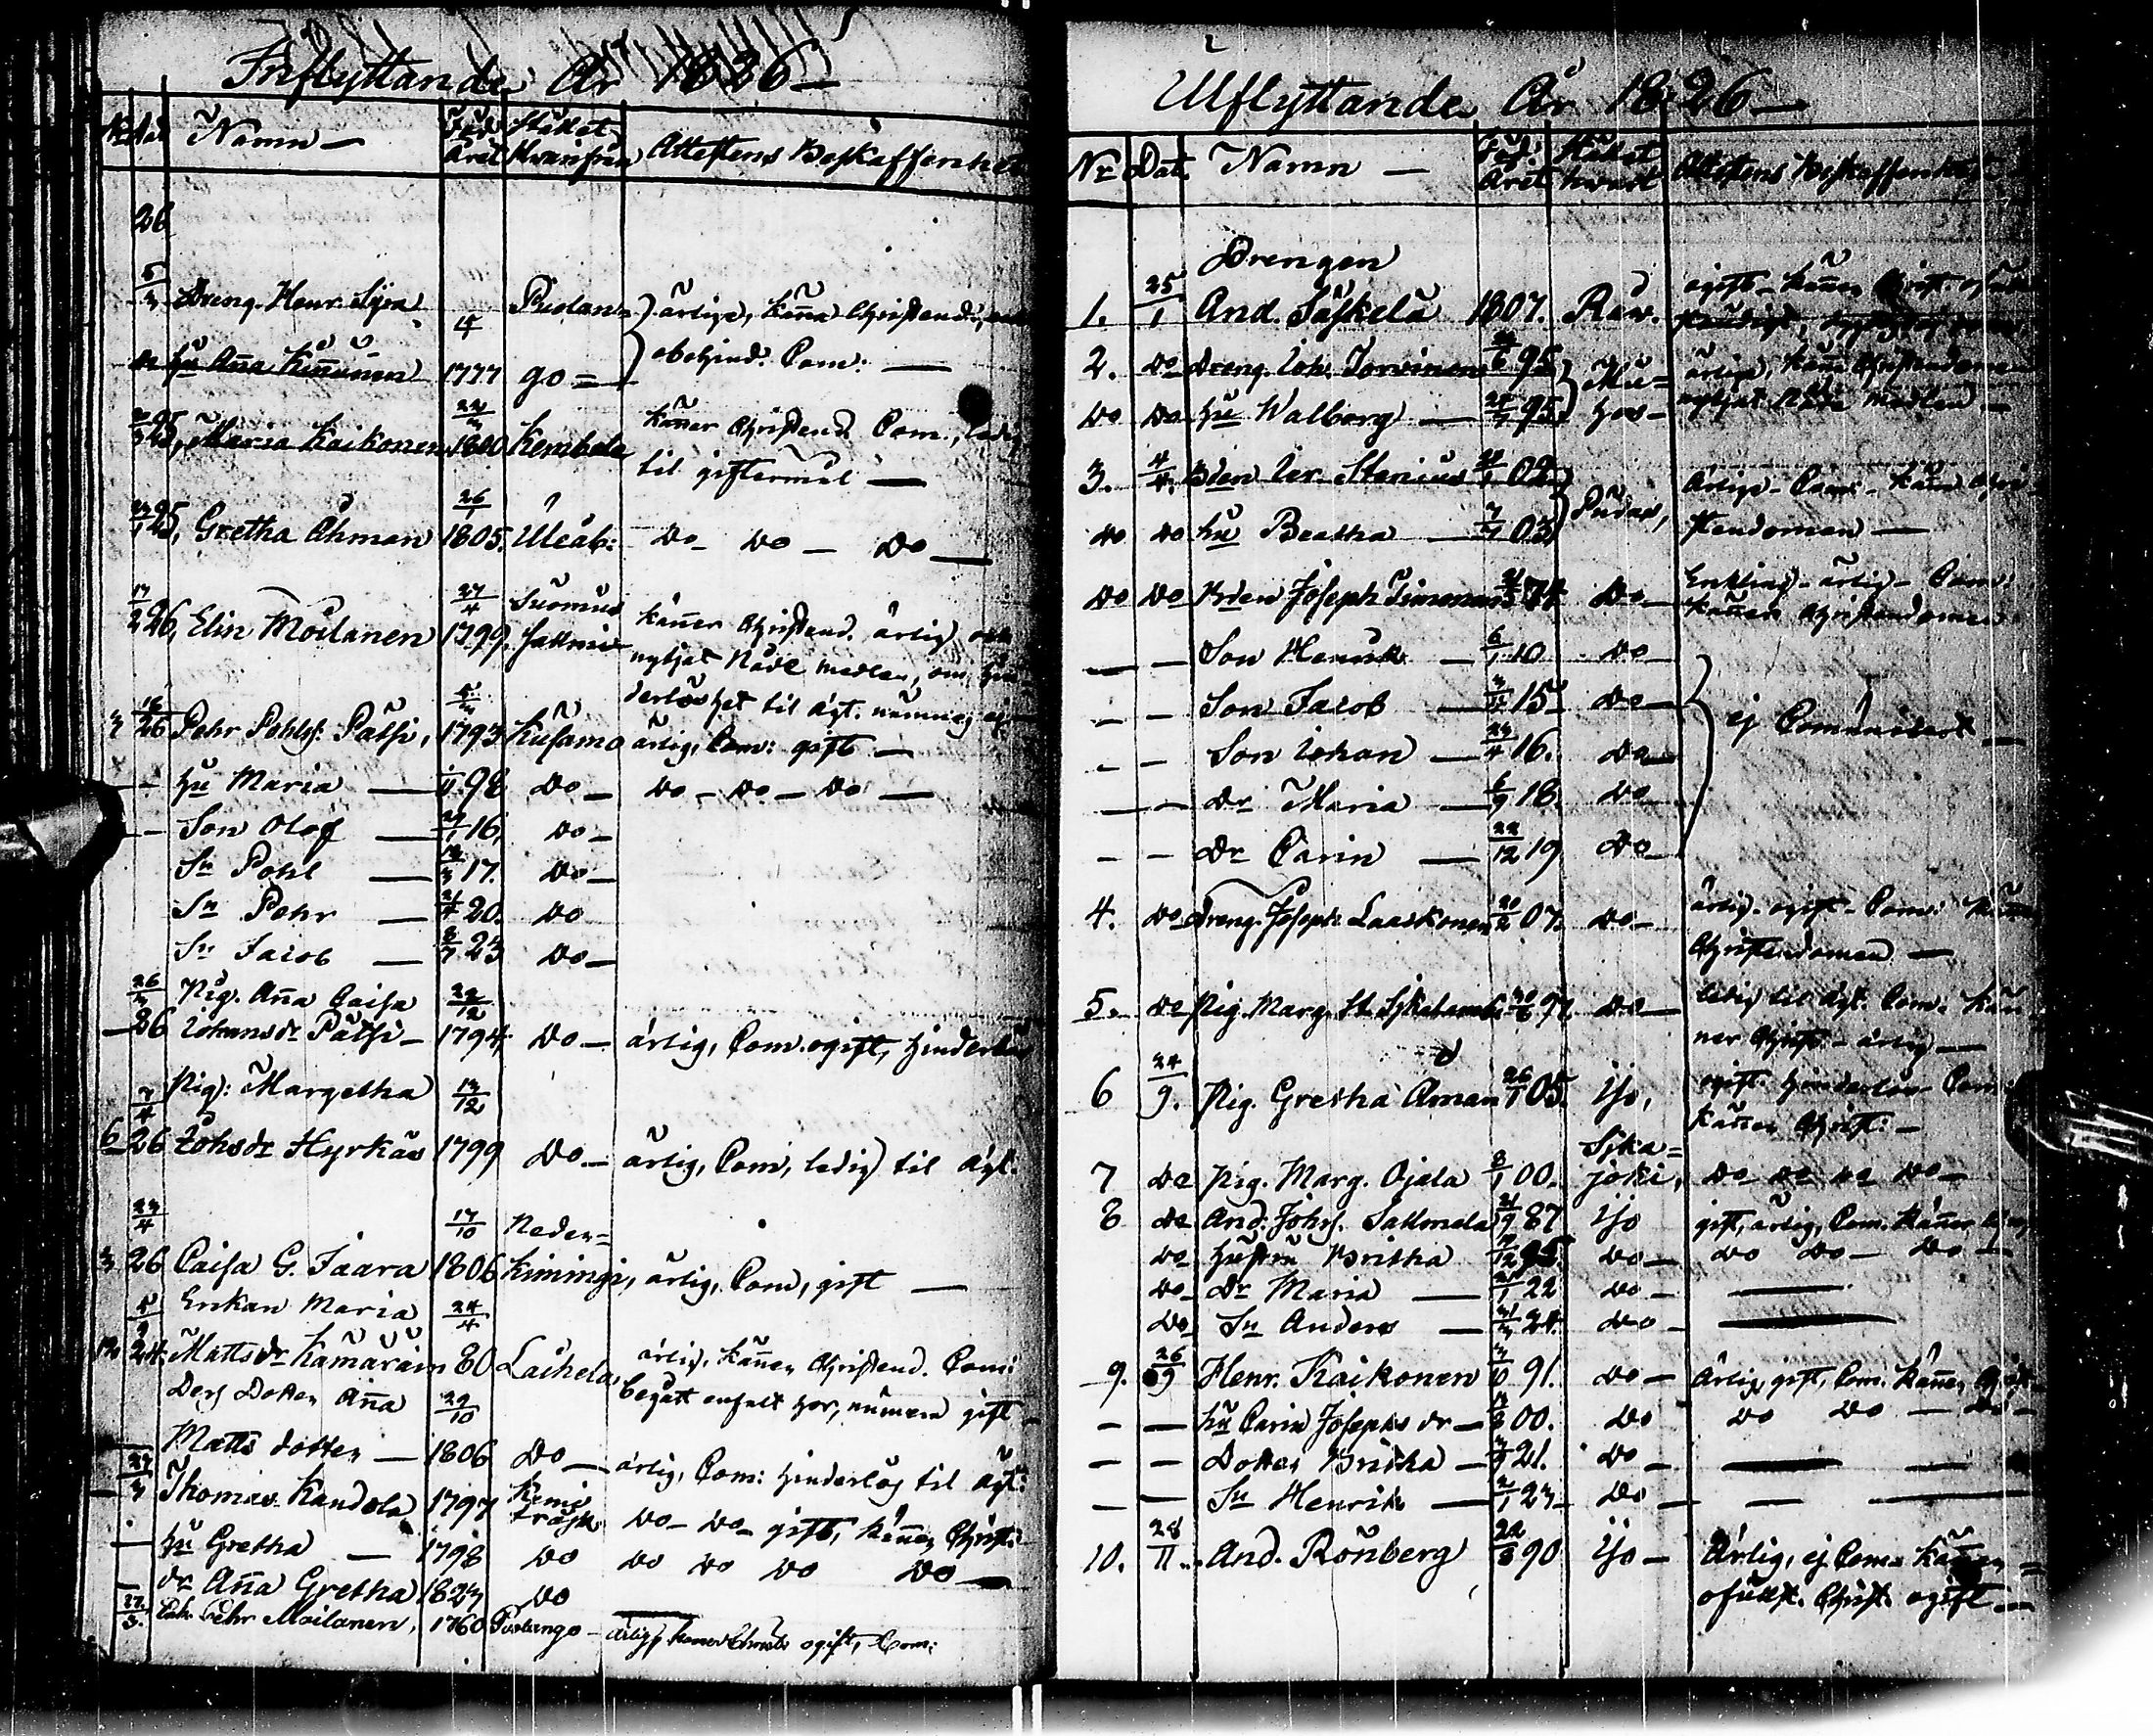 Inflyttande År 1826
Nr Dat Namn Föd. Året Stället hvarifrån Attestens Beskaffenhet
26
5/3 Dreng. Henr. Pudas= ärliga, känna Christend:
do hu Anna Kinnunen 1777 go= obehind. Com:
Maria Kaikonen 1800 Kembele känner Christend. Com., ledig
til giftermål
Gretha Åhman 26/1 1805. Uleåb: do do do
17/2 26, Elin Moilanen 27/4 1799. Suomus salmi känner Christend. ärlig, och
nytjat Nåde medlen, om hin-
derlöshet til ägt. nämnes ej
3 26 Pehr Pohls: Pätsi, 1793 Kusamo ärlig, Com: gift
hu Maria 98 do do do do
Son Olof 16, do
Sn Pohl 17. do
Sn Pehr 20. do
Sn Jacob 23 do
26/3 Pig. Anna Caisa 22/12
26 Johans dr Pätsi 1794, do ärlig, Com. ogift, hinderlös
7/4 Pig: Margetha 13/12
6 26 Zachs dr Hyrkäs 1799 do ärlig, Com, ledig til ägt.
23/4 17/10 Neder=
3 26 Caisa G. Jaara 1806 Kimingi, ärlig, Com, gift
Enkan Maria 24/4
12 24. Matts dr Kämäräin 80 Laihela, ärlig, känner Christend. Com:
Dess Dotter Anna 29/10 begått enfalt hor, numera gift
Matts dotter 1806 do ärlig, Com: hinderlös til ägt:
27/3 Thomas Kandola 1797 Kemi träsk do do gift, känner Christ:
hu Gretha 1798 do do do do do
dr Anna Gretha 1823 do
27/3. Pehr Moilanen, 1760 Pudango ärlig, känner Christ: ogift, Com:
Utflyttande År 1826
Nr Dat. Namn Föd. Året Stället hvart Attestens Beskaffenhet
Drengen
1. 25/1 And. Säskelä 1807. Rev. ogift känner Christ.
2. do Dreng. Joh. Torvinen 95 Mu= ärliga, känna Christendomen
do do hu Walborg 95 hos nytjat Nåde medlen
3. 4/4. Bden Stenius 02 Pudas, Ärliga Com: känna Chri-
do do hu Beatha 03 stendomen
do do Bden Joseph Timonen do Enkling ärlig Com
känner Christendomen
Son Henrik 6/1 10 do
Son Jacob 15 do
Son Johan 16. do ej Comunicert
dr Maria 18. do
dr Carin 22/12 19 do
4. do Dreng. Joseph Laaskonen 20/2 07. do ärlig. ogift. Com: känner
Christendomen
5. do Pig. Marg. do ledig til ägt. Com. kän
ner Christ. ärlig
6 24/9. Pig. Gretha Åman 26/1 05. Ijo, ogift. hinderlös Com
känner Christ:
7 do Pig. Marg. Ojala 8/1 00. Sjka= joki, do do do do
8 do And. Johs. Sallmela 87 Ijo gift, ärlig, Com. känner
do hustru Britha do do do do
do dr Maria 22 do
do Sn Anders 24. do
9. 26/9 Henr. Kaikonen 91. do Ärlig, gift, Com. känner
hu Carin Josephs dr 00. do do do do
Dotter Britha 21. do
Sn Henrik 23 do
10. 28/11 And. Rönberg 22/8 90 Ijo Ärlig, ej Com. känner
Christ. ogift